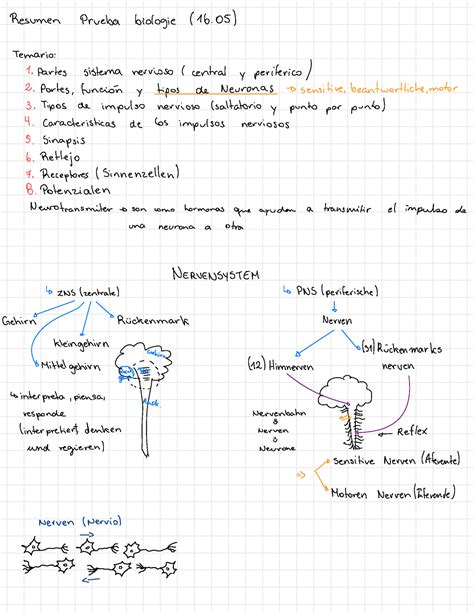 Resumen Prueba biologie (16.05)
Temario:
1. Partes sistema nervioso (central y periferico)
2. Partes, función y tipos de Neuronas → sensitive, beantwortliche, motor
3. Tipos de impulso nervioso (saltatorio y punto por punto)
4. Caracteristicas de los impulsos nerviosos
5. Sinapsis
6. Reflejo
7. Receptores (Sinnenzellen)
8. Potenzialen
Neurotransmiter → son como hormonas que ayudan a transmitir el impulso de
una neurona a otra
NERVENSYSTEM
ZNS (zentrale)
Gehirn
Rückenmark
kleingehirn
Mittelgehirn
Gehirn
interpreta, piensa,
responde
(interpretiert, denken
und regieren)
PNS (periferische)
Nerven
(12) Hirnnerven
(31) Rückenmarks
nerven
Nervenbahn
Nerven
Neurone
Reflex
Sensitive Nerven (Aferente)
Motoren Nerven (Eferente)
Nerven (Nervio)